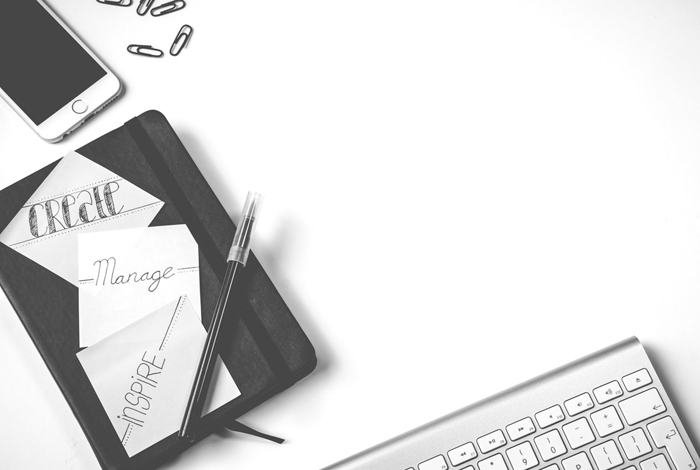 CREATE
Manage
INSPIRE